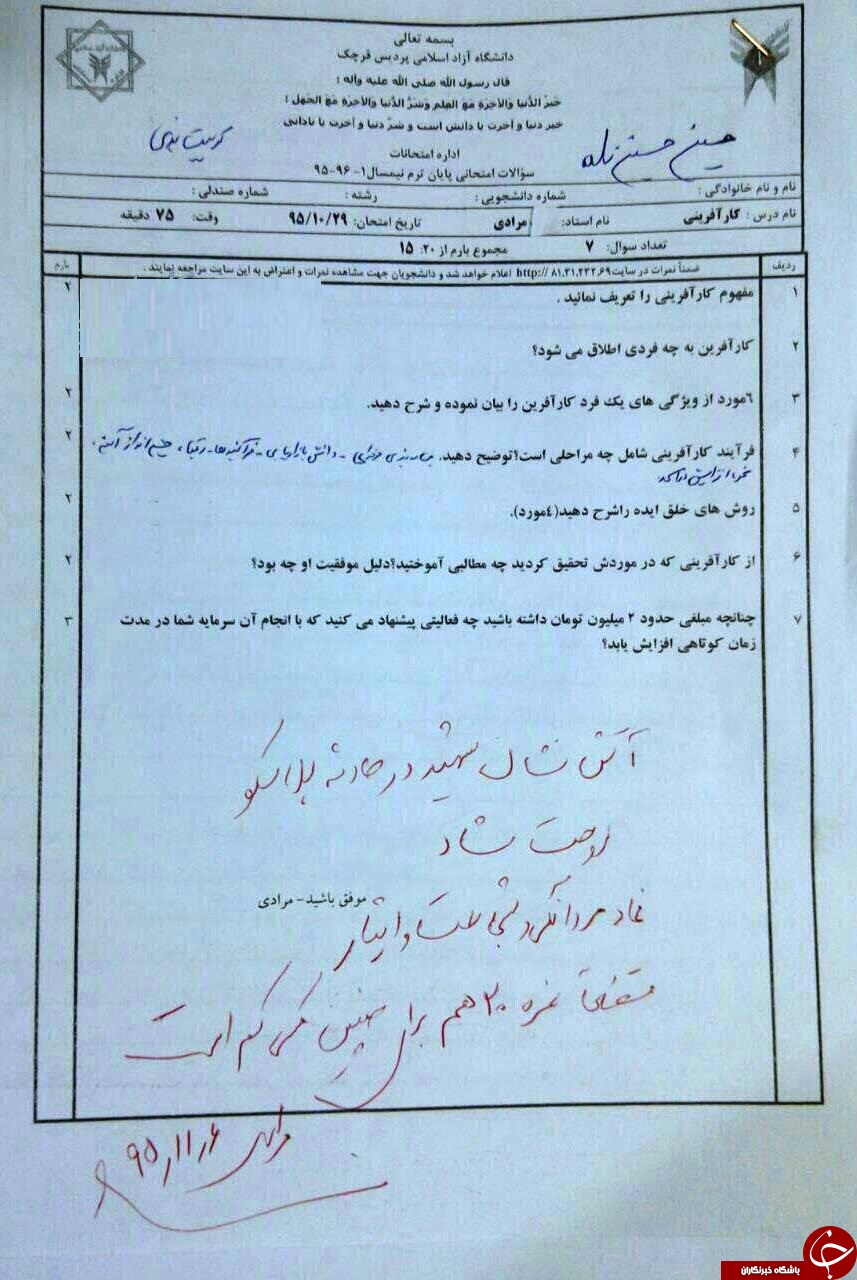 بسمه تعالی
دانشگاه آزاد اسلامی پردیس قرچک
قال رسول الله صلی الله علیه واله :
خَیرُ الدُّنیا وَالآخِرَةِ مَعَ العِلمِ وَشَرُّ الدُّنیا وَالآخِرَةِ مَعَ الجَهلِ ؛
خیر دنیا و آخرت با دانش است و شرّ دنیا و آخرت با نادانی
حسین حسین زاده
اداره امتحانات
سؤالات امتحانی پایان ترم نیمسال۱- ۹۶-۹۵
نام و نام خانوادگی : شماره دانشجویی : رشته : شماره صندلی :
نام درس : کارآفرینی نام استاد: مرادی تاریخ امتحان: ۹۵/۱۰/۲۹ وقت: ۷۵ دقیقه
تعداد سوال: ۷ مجموع بارم از ۲۰: ۱۵
ردیف ضمناً نمرات در سایت۸۱.۳۱.۲۳۲.۶۹ //:http اعلام خواهد شد و دانشجویان جهت مشاهده نمرات و اعتراض به این سایت مراجعه نمایند . بارم
۱ مفهوم کارآفرینی را تعریف نمائید . ۲
۲ کارآفرین به چه فردی اطلاق می شود؟ ۲
۳ ٦مورد از ویژگی های یک فرد کارآفرین را بیان نموده و شرح دهید. ۲
۴ فرآیند کارآفرینی شامل چه مراحلی است؟توضیح دهید. دانش بازاریابی - فرآیندها - رقبا ، چشم انداز آینده ، ۲
۵ روش های خلق ایده راشرح دهید(٤مورد). ۲
۶ از کارآفرینی که در موردش تحقیق کردید چه مطالبی آموختید؟دلیل موفقیت او چه بود؟ ۲
۷ چنانچه مبلغی حدود ۲ میلیون تومان داشته باشید چه فعالیتی پیشنهاد می کنید که با انجام آن سرمایه شما در مدت ۳
زمان کوتاهی افزایش یابد؟
آتش نشان شهید در حادثه پلاسکو
روحت شاد
موفق باشید- مرادی
نماد مردانگی و شجاعت و ایثار
نمره ۲۰ هم برای چنین کم است
مرادی ۹۵/۱۱/۶
باشگاه خبرنگاران